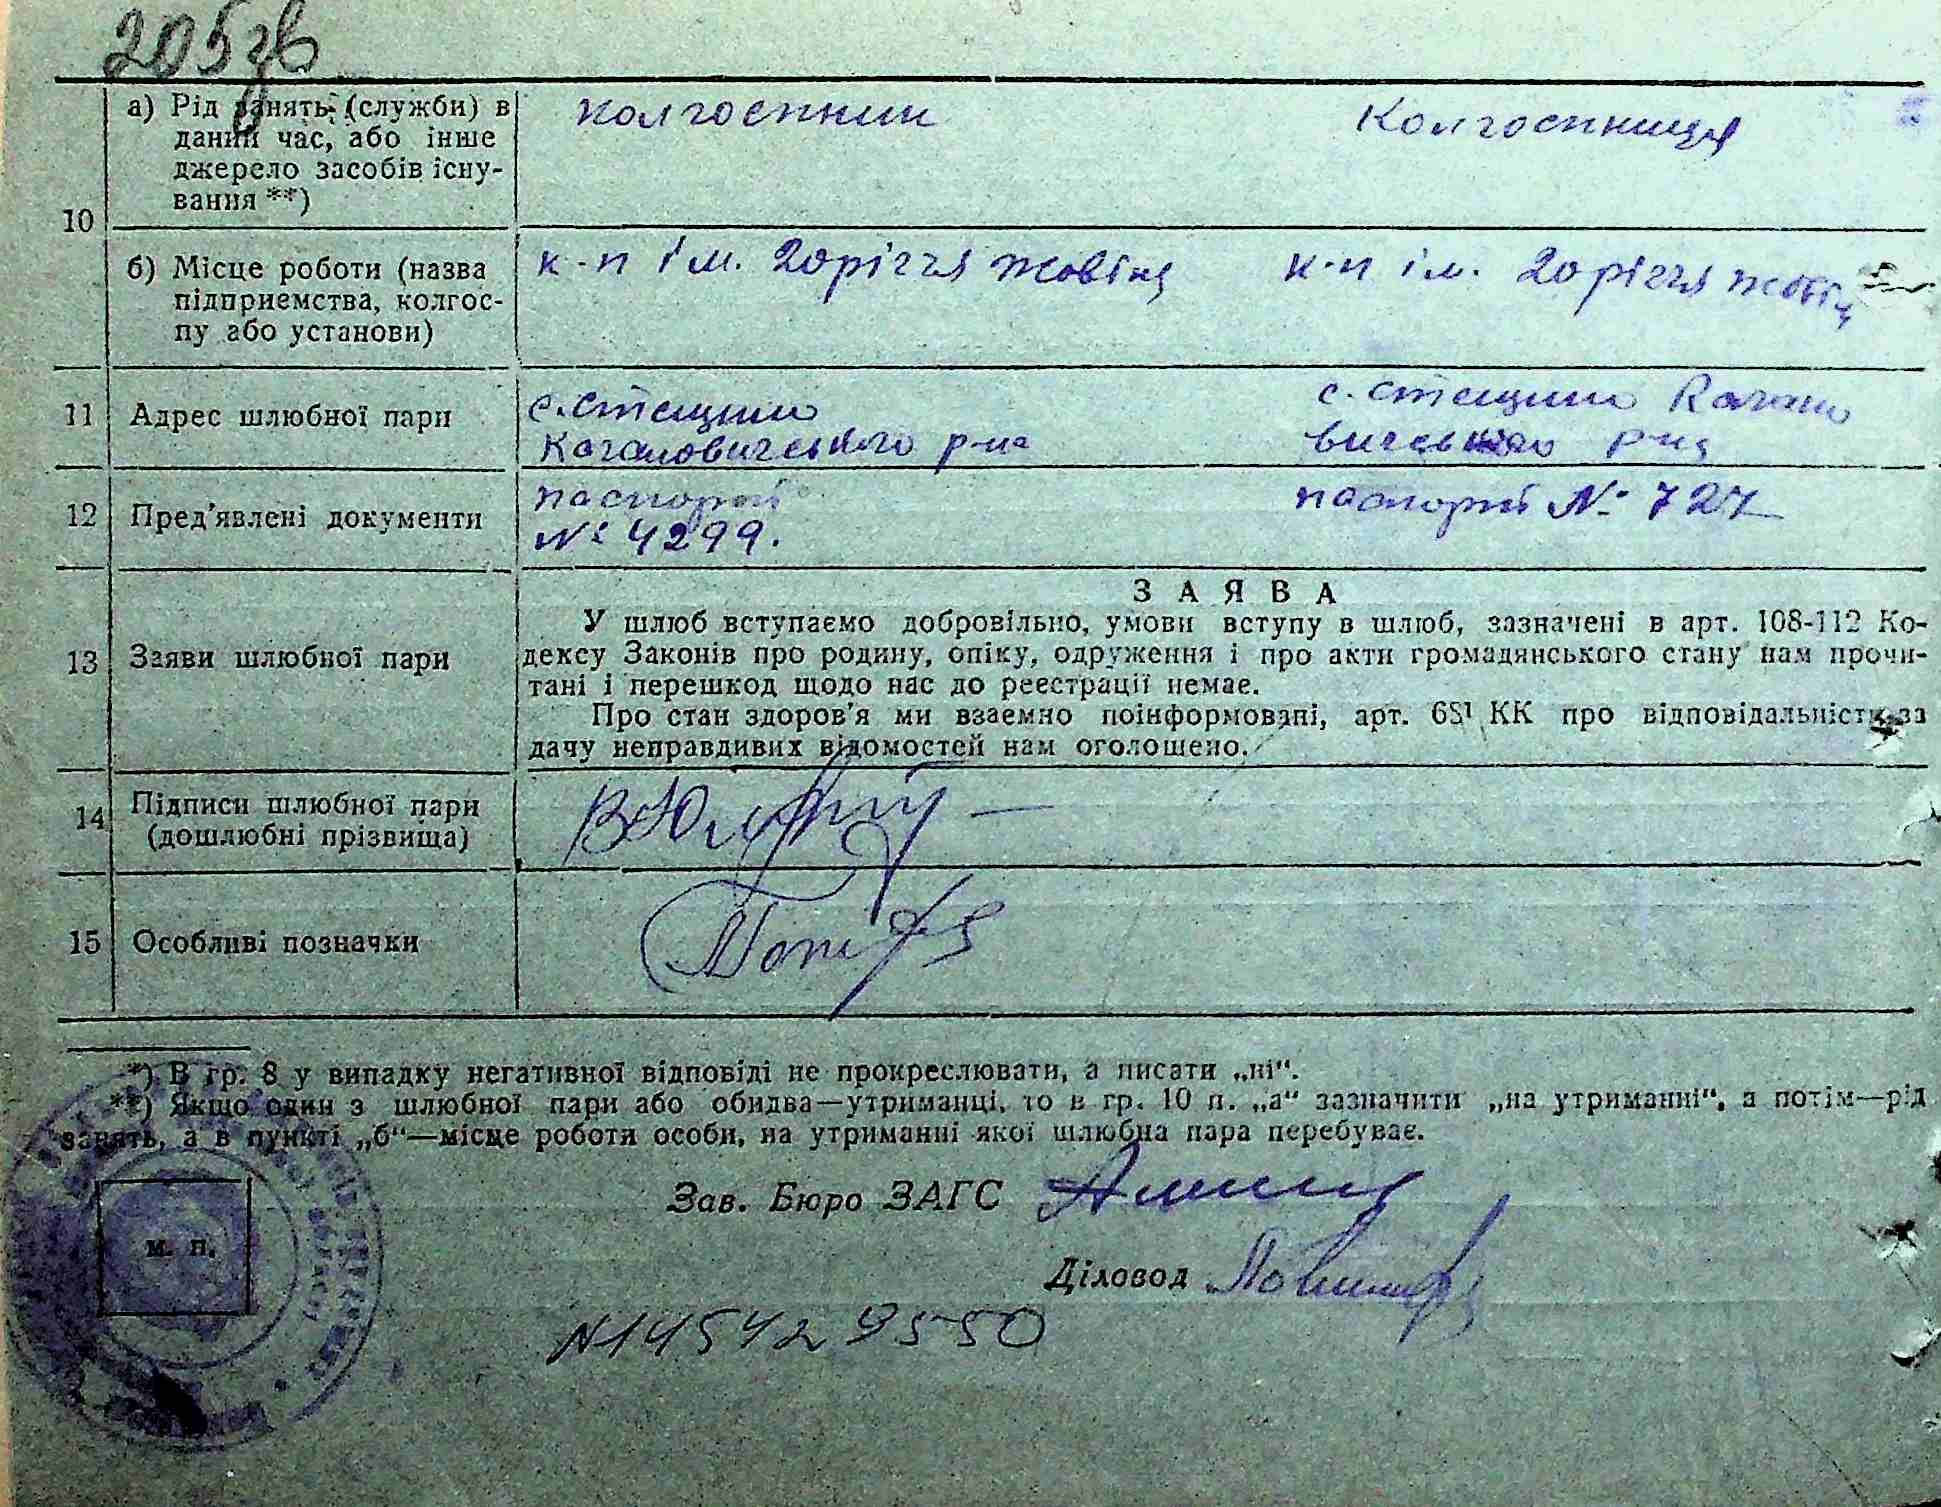 205 зв
а) Рід занять (служби) в
даний час, або інше
джерело засобів існу-
вання **)
колгоспник
Колгоспниця
10
б) Місце роботи (назва
підприємства, колгос-
пу або установи)
к-п ім. 20річчя жовтня
к-п ім. 20річчя жовтня
11 Адрес шлюбної пари
с. Стещина
Кагановичського р-на
с. Стещина Кагано
вичського р-на
12 Пред'явлені документи
паспорт
№ 4299.
паспорт № 727
13 Заяви шлюбної пари
ЗАЯВА
У шлюб вступаємо добровільно, умови вступу в шлюб, зазначені в арт. 108-112 Ко-
дексу Законів про родину, опіку, одруження і про акти громадянського стану нам прочи-
тані і перешкод щодо нас до реєстрації немає.
Про стан здоров'я ми взаємно поінформовані, арт. 68¹ КК про відповідальність за
дачу неправдивих відомостей нам оголошено.
14 Підписи шлюбної пари
(дошлюбні прізвища)
15 Особливі позначки
*) В гр. 8 у випадку негативної відповіді не прокреслювати, а писати „ні“.
**) Якщо один з шлюбної пари або обидва—утриманці, то в гр. 10 п. „а“ зазначити „на утриманні“, а потім—рід
занять, а в пункті „б“—місце роботи особи, на утриманні якої шлюбна пара перебуває.
Зав. Бюро ЗАГС
м. п.
Діловод
N145429550